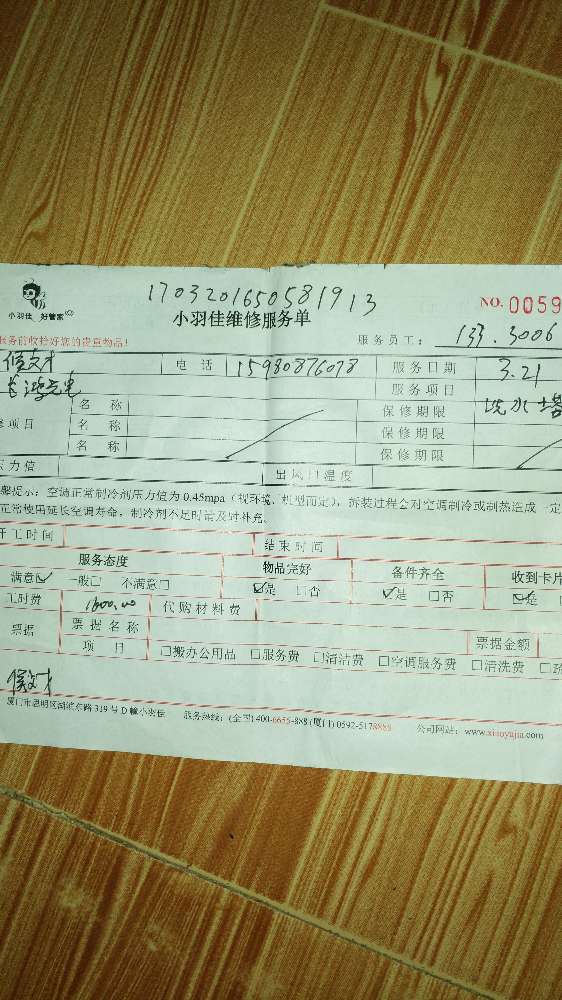 1703201650581913
小羽佳 好管家
小羽佳维修服务单
NO. 0059
服务前收拾好您的贵重物品!
服务员工: 133.3006
侯文才 电话 服务日期 3.21
长鸿光电 服务项目 洗水塔
名称 保修期限
修项目 名称 保修期限
名称 保修期限
压力值 出风口温度
馨提示:空调正常制冷剂压力值为0.45mpa(视环境、机型而定),拆装过程会对空调制冷或制热造成一定
正常使用延长空调寿命,制冷剂不足时请及时补充。
开工时间 结束时间
服务态度 物品完好 备件齐全 收到卡片
满意☑ 一般□ 不满意□ ☑是 □否 ☑是 □否 ☑是
工时费 1600.00 代购材料费
票据 票据名称 票据金额
项目 □搬办公用品 □服务费 □清洁费 □空调服务费 □清洗费
侯文才
厦门市思明区湖滨东路319号D幢小羽佳 服务热线:(全国)400-6656-888 (厦门)0592-5178888 公司网站:www.xiaoyujia.com